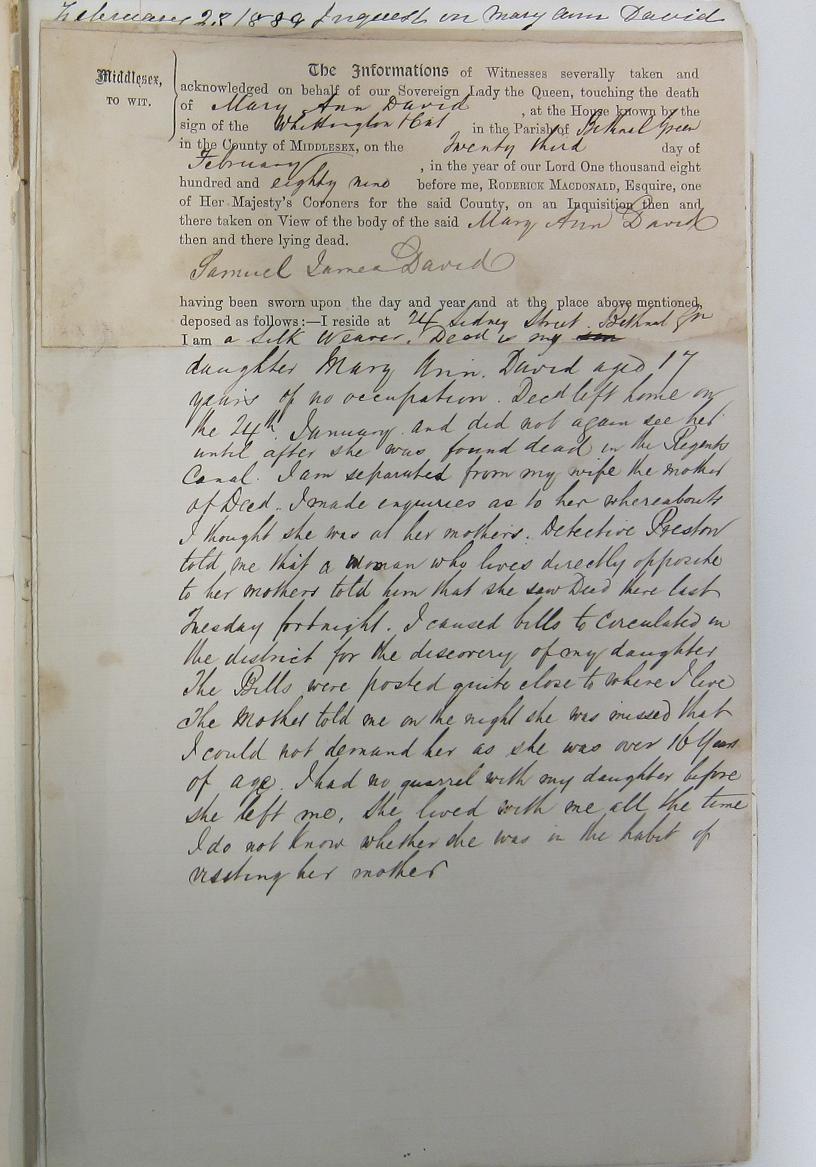 February 23 1889 Inquest on Mary Ann David
Middlesex,
TO WIT.
The Informations of Witnesses severally taken and
acknowledged on behalf of our Sovereign Lady the Queen, touching the death
of Mary Ann David, at the House known by the
sign of the Whittington & Cat in the Parish of Bethnal Green
in the County of MIDDLESEX, on the Twenty third day of
February, in the year of our Lord One thousand eight
hundred and eighty nine before me, RODERICK MACDONALD, Esquire, one
of Her Majesty's Coroners for the said County, on an Inquisition then and
there taken on View of the body of the said Mary Ann David
then and there lying dead.
Samuel James David
having been sworn upon the day and year and at the place above mentioned,
deposed as follows:—I reside at 24 Sidney Street. Bethnal Gn
I am a Silk Weaver. Deced is my son
daughter Mary Ann. David aged 17
years of no occupation. Deced left home on
the 24th January. and did not again see her
until after she was found dead in the Regents
Canal. I am separated from my wife the mother
of Deced.. I made enquiries as to her whereabouts
I thought she was at her mothers. Detective Preston
told me that a woman who lives directly opposite
to her mothers told him that she saw Deced there last
Tuesday fortnight. I caused bills to circulated in
the district for the discovery of my daughter
The Bills were posted quite close to where I live
The Mother told me on the night she was missed that
I could not demand her as she was over 16 Years
of age. I had no quarrel with my daughter before
she left me. She lived with me all the time
I do not know whether she was in the habit of
visiting her mother